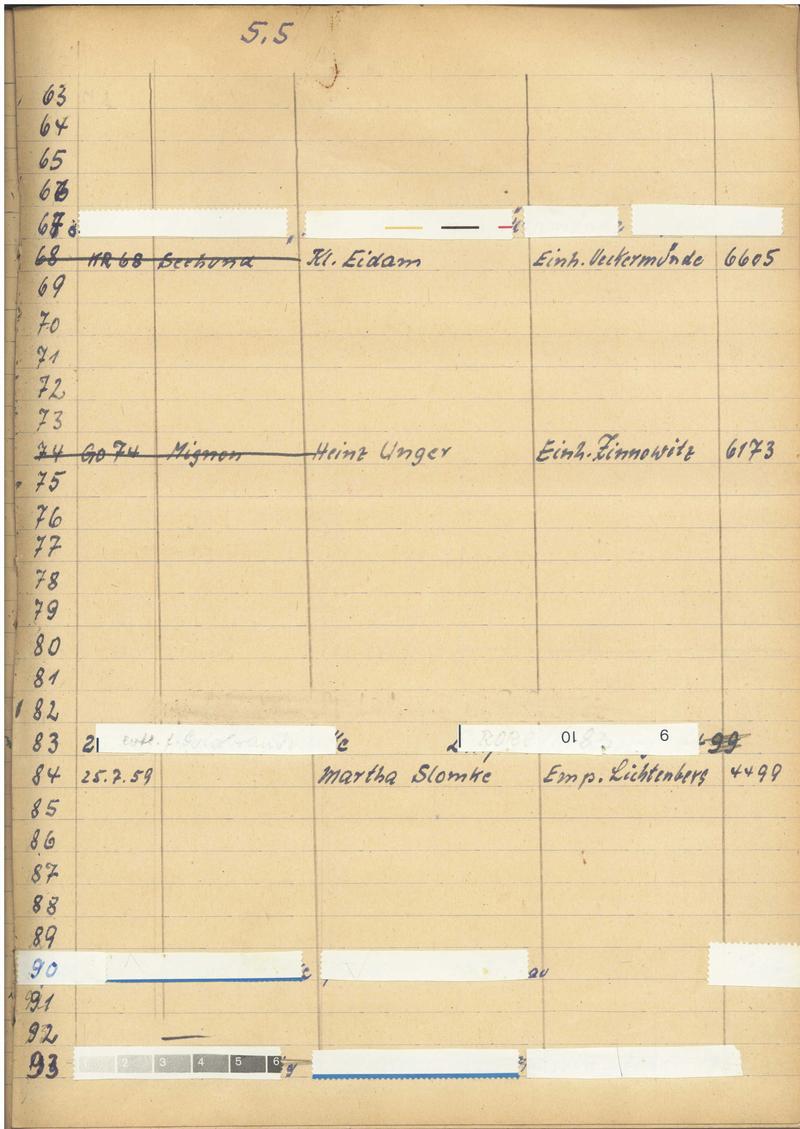 5.5
63
64
65
66
67
68 KR 68 Seehund Kl. Eidam Einh. Ueckermünde 6605
69
70
71
72
73
74 GO 74 Mignon Heinz Unger Einh. Zinnowitz 6173
75
76
77
78
79
80
81
82
83 2 10 9 99
84 25.7.59 Martha Slomke Emp. Lichtenberg 4499
85
86
87
88
89
90
91
92
93 1 2 3 4 5 6